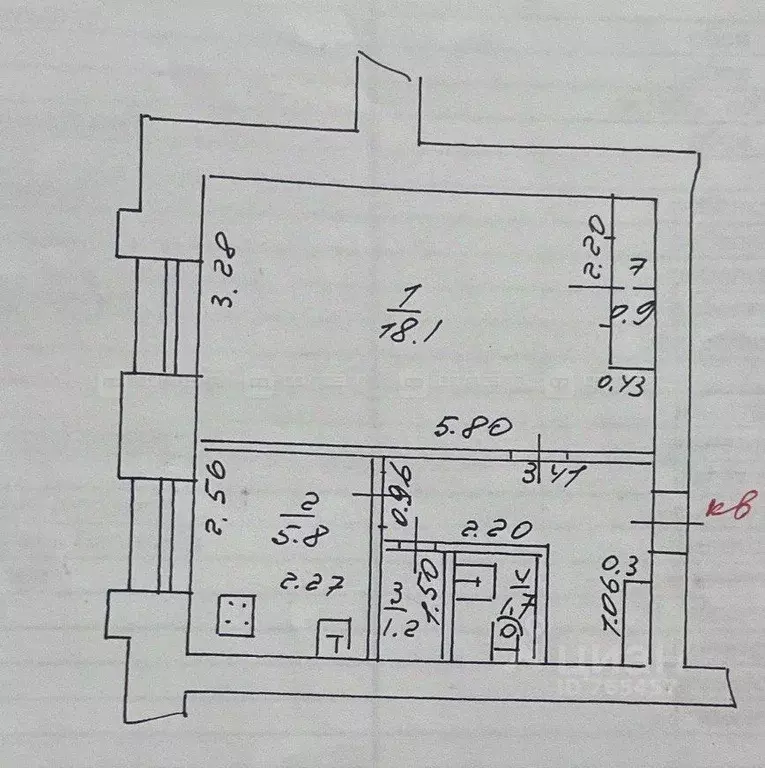 2.20
3.28
7
0.9
1
18.1
0.43
5.80
3.41
2.56
0.96
кв
2
5.8
2.20
2.27
1.50
0.3
1.06
3
1.2
1.7
T
ЦИАН